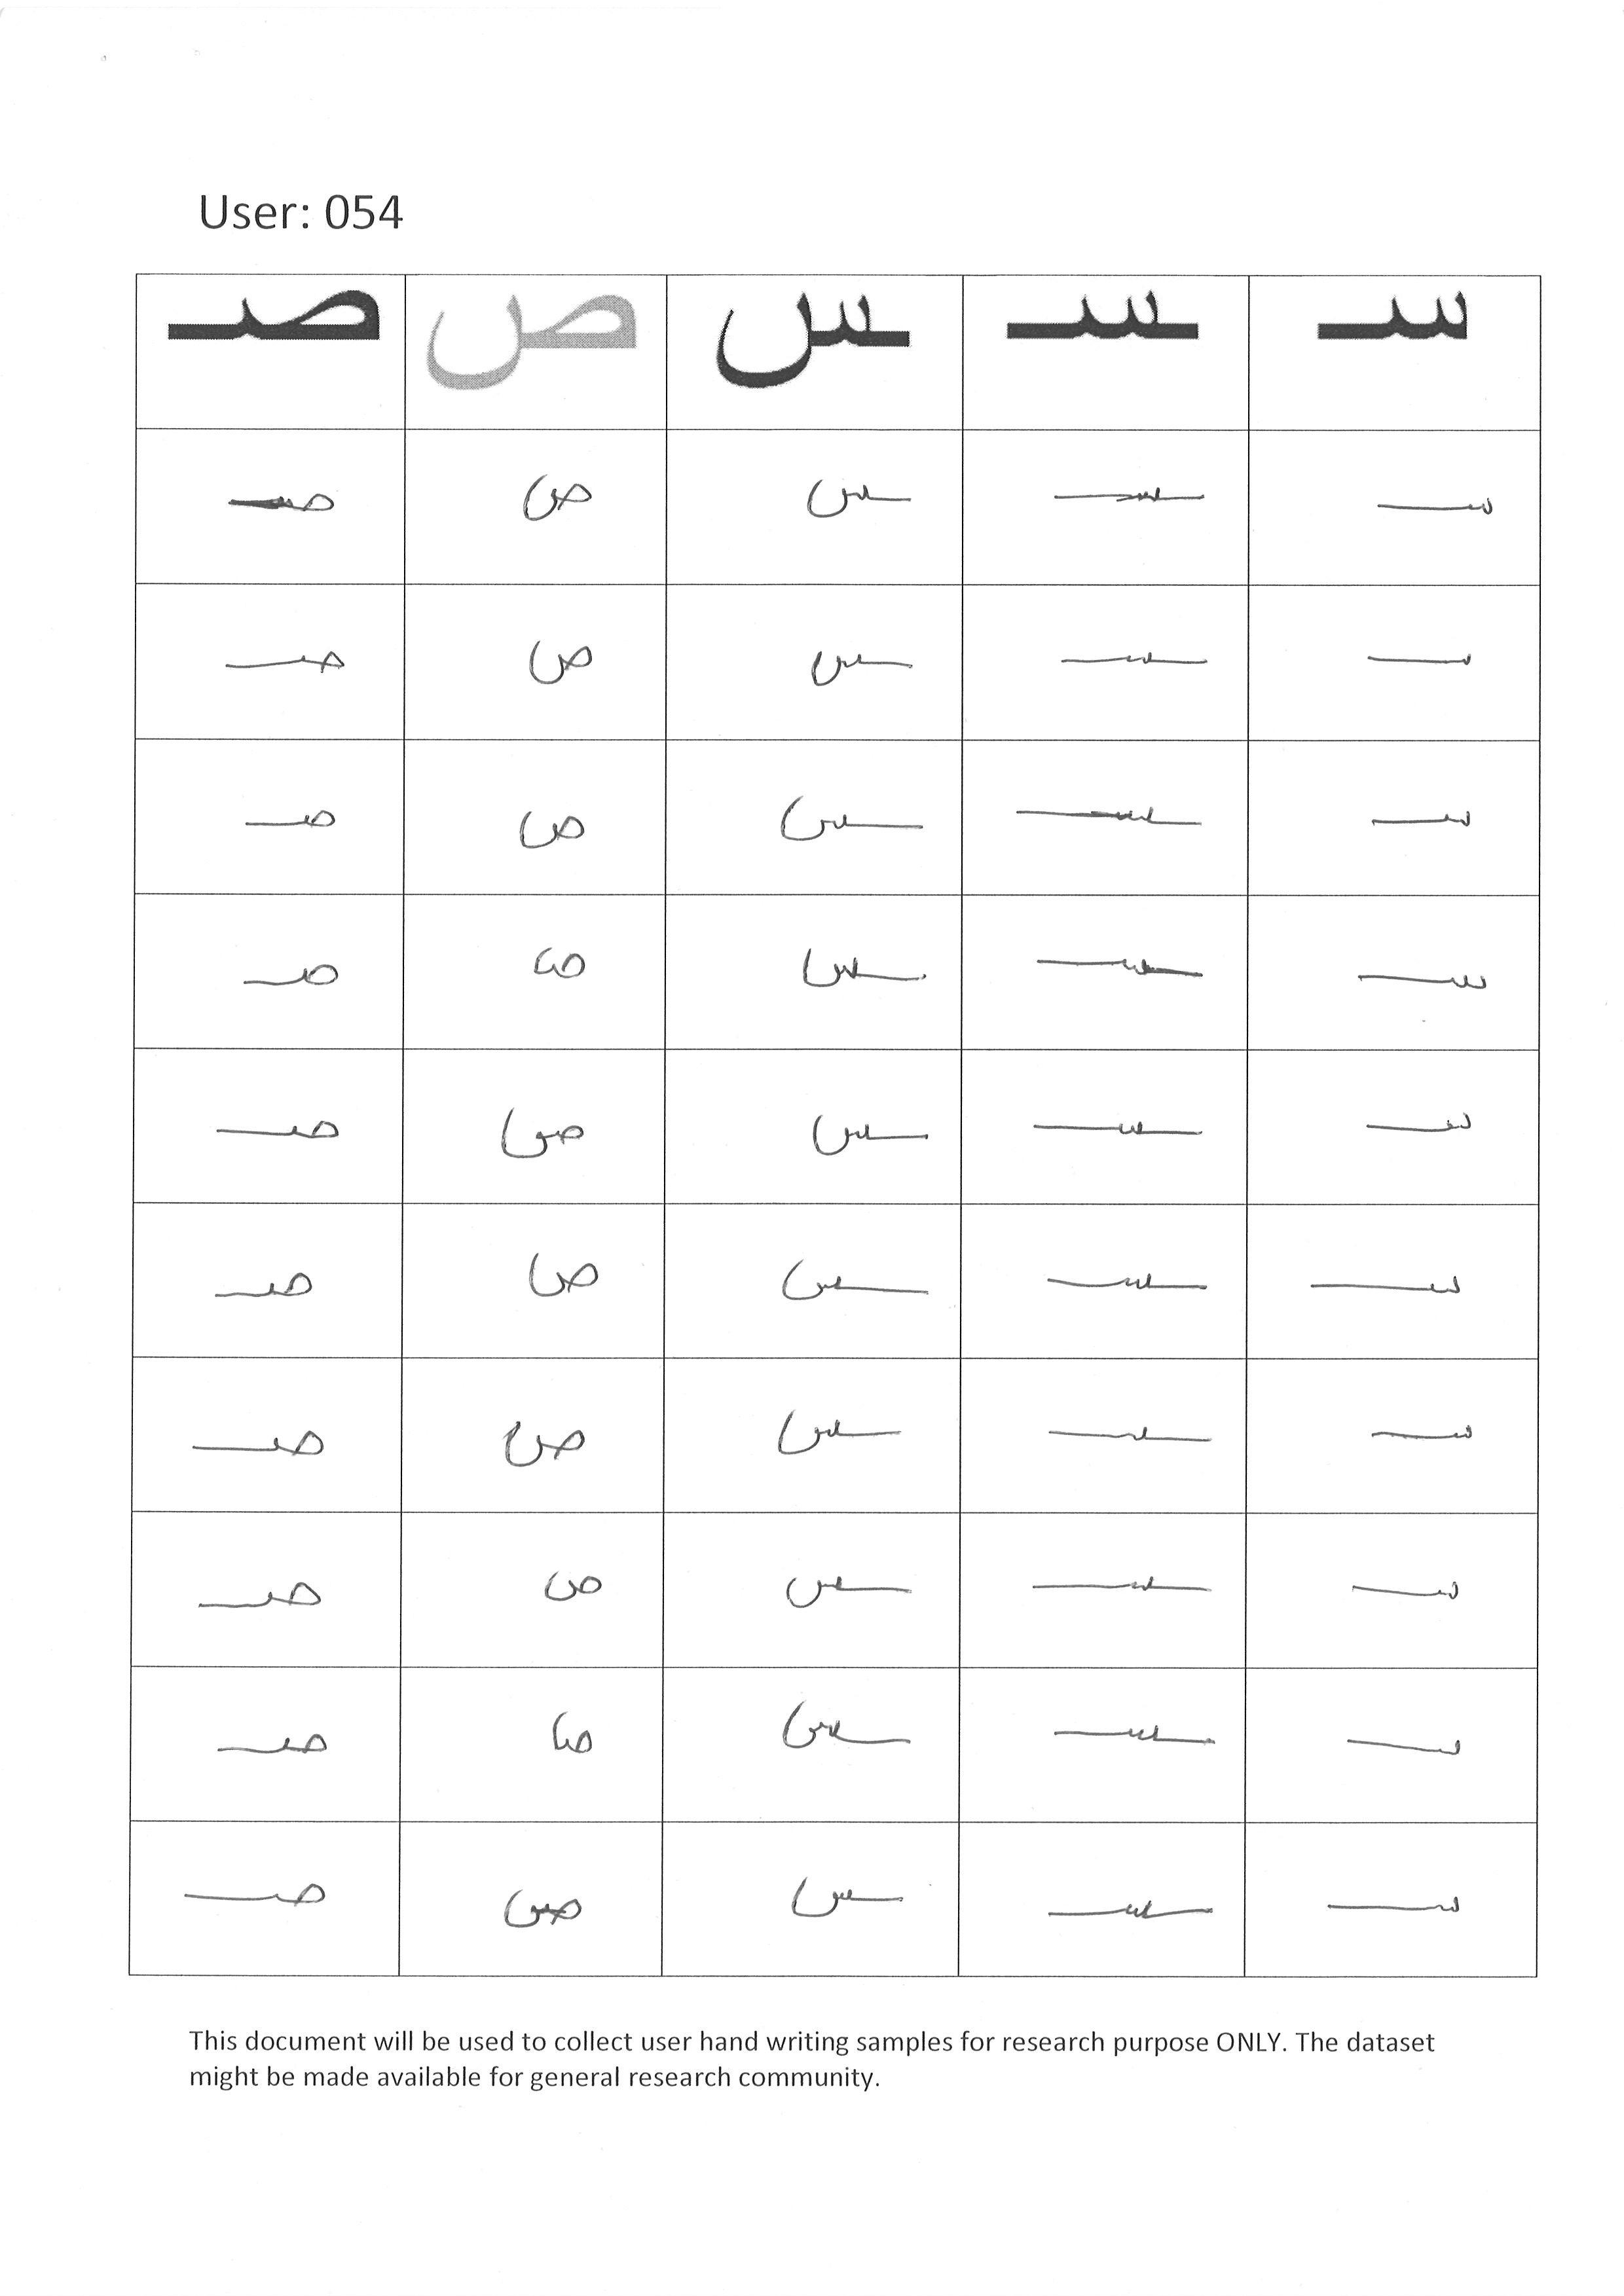 User: 054
سـ ـسـ ـس ص صـ
سـ ـسـ ـس ص صـ
سـ ـسـ ـس ص صـ
سـ ـسـ ـس ص صـ
سـ ـسـ ـس ص صـ
سـ ـسـ ـس ص صـ
سـ ـسـ ـس ص صـ
سـ ـسـ ـس ص صـ
سـ ـسـ ـس ص صـ
سـ ـسـ ـس ص صـ
سـ ـسـ ـس ص صـ
This document will be used to collect user hand writing samples for research purpose ONLY. The dataset
might be made available for general research community.